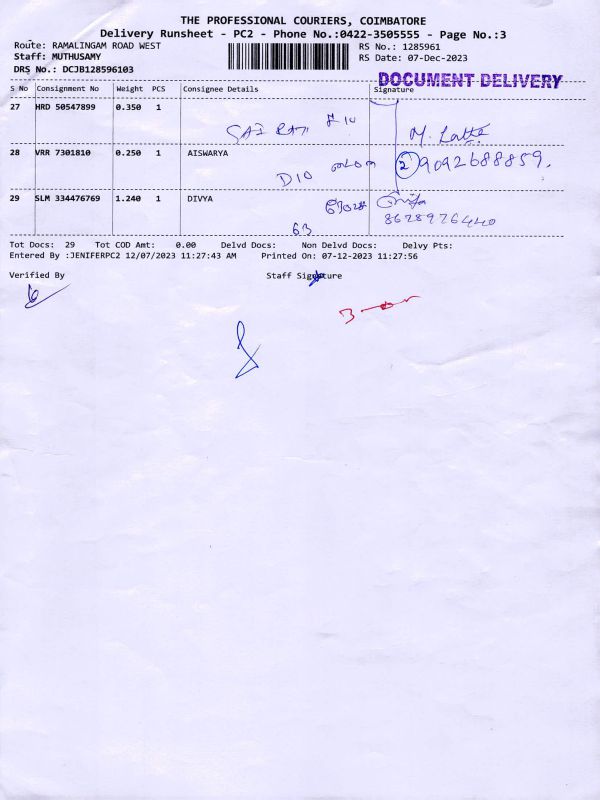 THE PROFESSIONAL COURIERS, COIMBATORE
Delivery Runsheet - PC2 - Phone No.:0422-3505555 - Page No.:3
Route: RAMALINGAM ROAD WEST
RS No.: 1285961
Staff: MUTHUSAMY
RS Date: 07-Dec-2023
DRS No.: DCJB128596103
DOCUMENT DELIVERY
S No Consignment No Weight PCS Consignee Details Signature
27 HRD 50547899 0.350 1
SAI
28 VRR 7301810 0.250 1 AISWARYA
D10
2 9092688859.
29 SLM 334476769 1.240 1 DIVYA
63
8628926440
Tot Docs: 29 Tot COD Amt: 0.00 Delvd Docs: Non Delvd Docs: Delvy Pts:
Entered By :JENIFERPC2 12/07/2023 11:27:43 AM Printed On: 07-12-2023 11:27:56
Verified By Staff Signature